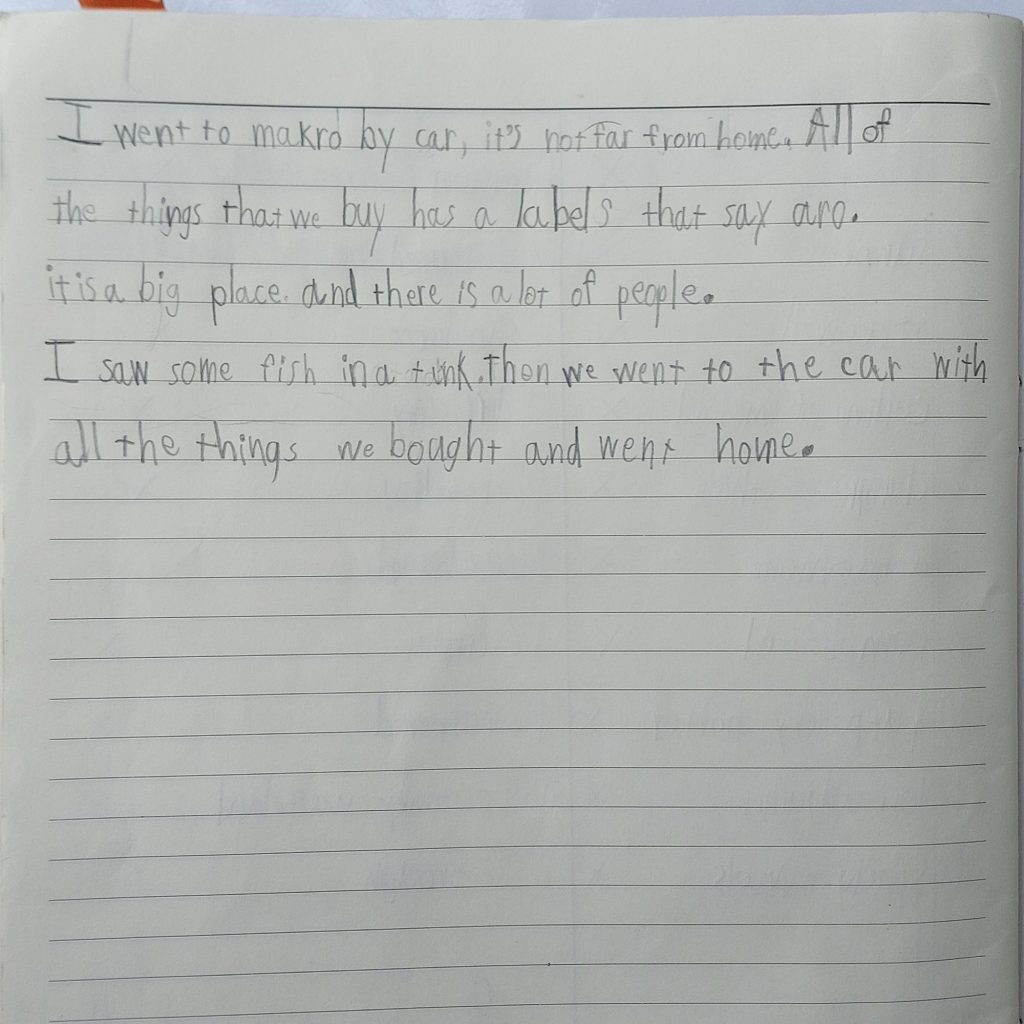 I went to makro by car, it's not far from home. All of
the things that we buy has a labels that say aro.
it is a big place. and there is a lot of people.
I saw some fish in a tank. Then we went to the car with
all the things we bought and went home.